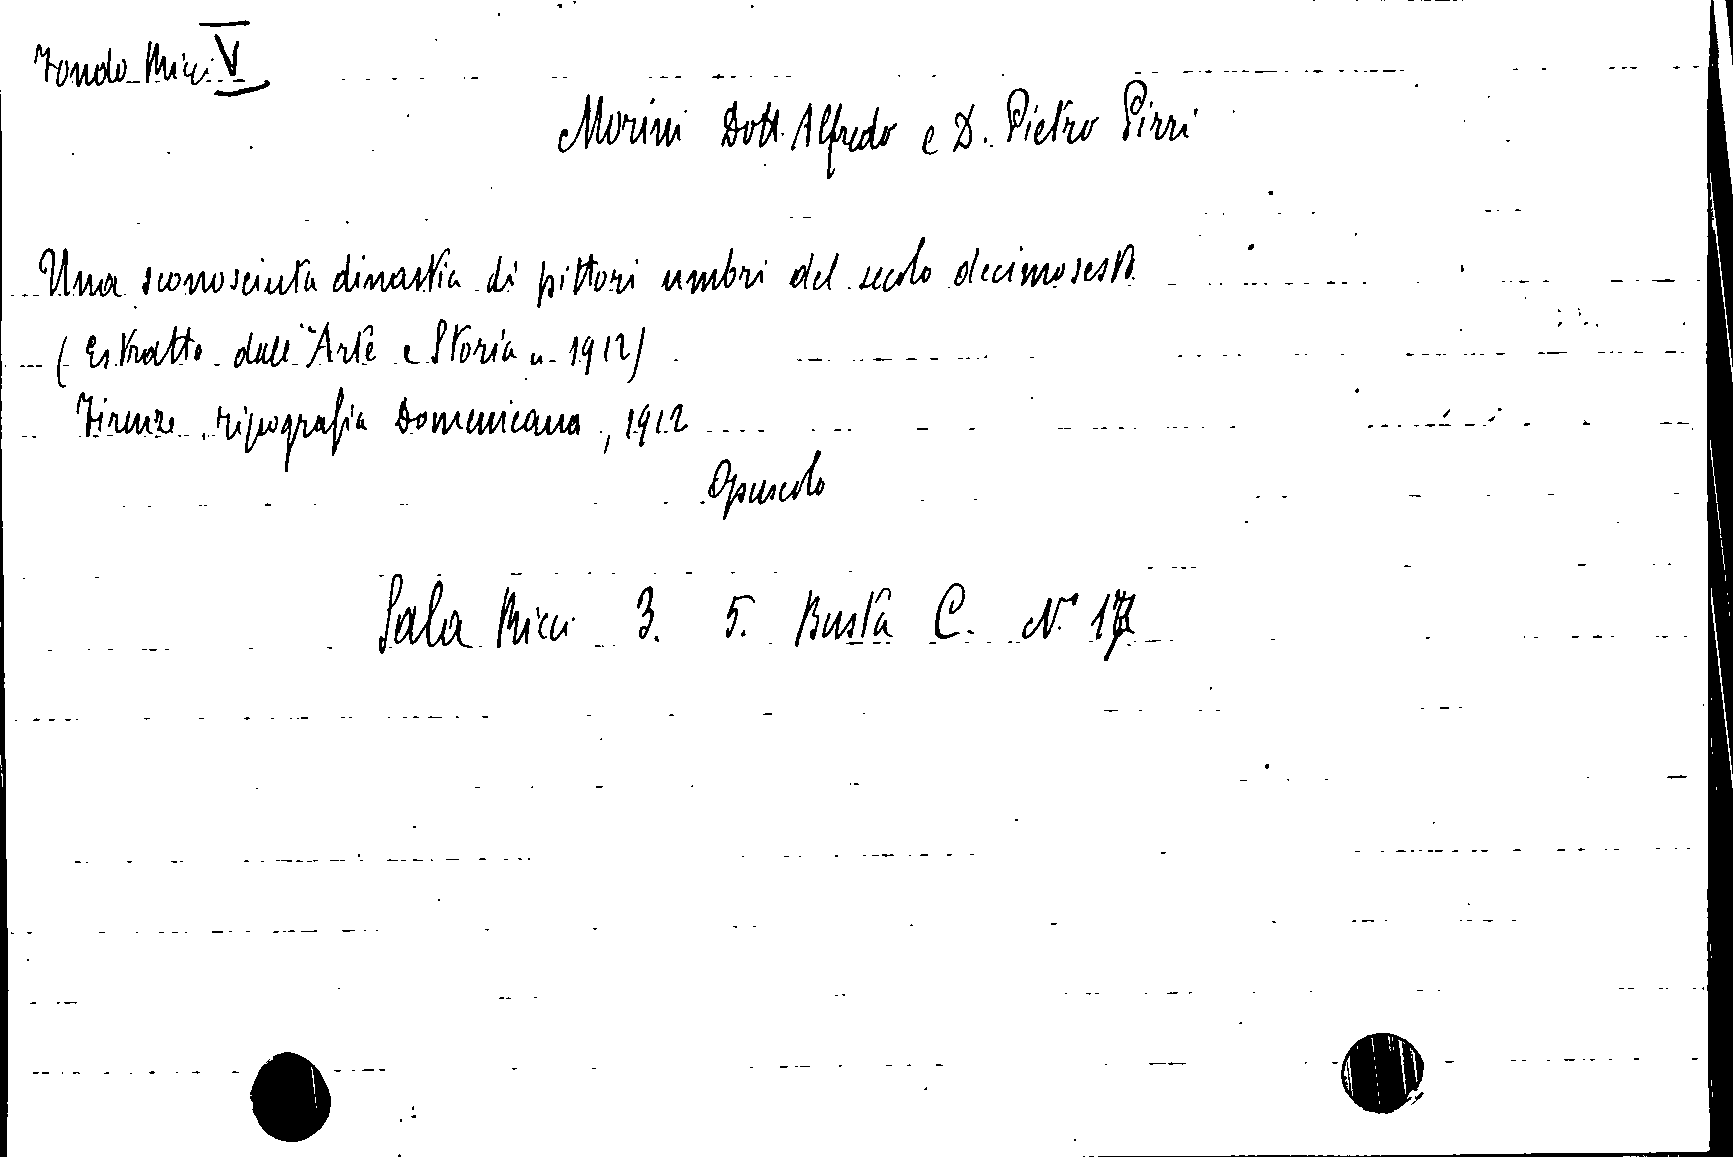 Fondo Ricci V
Morini Dott. Alfredo e D. Pietro Pirri
Una sconosciuta dinastia di pittori umbri del secolo decimosesto
(Estratto dall'"Arte e Storia" 1912)
Firenze, tipografia Domenicana, 1912
Opuscolo
Sala Ricci 3. 5. Busta C. N.°